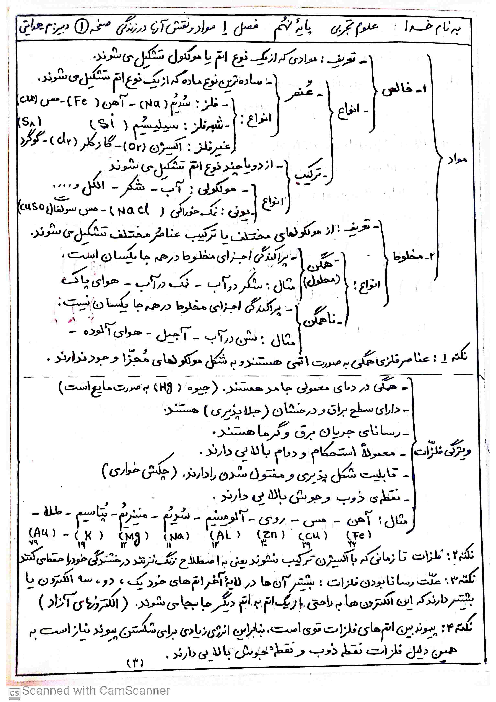 به نام خدا : علوم تجربی پایه نهم فصل 1 مواد و نقش آنها در زندگی صفحه 1
مواد
1- خالص
- تعریف: موادی که از یک نوع اتم یا مولکول تشکیل می شوند.
- انواع
- عنصر
- ساده ترین نوع ماده که از یک نوع اتم تشکیل می شوند.
انواع:
- فلز: سدیم (Na) - آهن (Fe) - مس (Cu)
- شبه فلز: سیلیسیم (Si) (S8)
غیرفلز: اکسیژن (O2) - گاز کلر (Cl2) - گوگرد
- ترکیب
- از دو یا چند نوع اتم تشکیل می شوند
انواع
- مولکولی: آب - شکر - الکل و ....
- یونی: نمک خوراکی (NaCl) - مس سولفات (CuSO4)
2- مخلوط
- تعریف: از مولکولهای مختلف یا ترکیب عناصر مختلف تشکیل می شوند.
انواع:
- همگن (محلول)
- پراکندگی اجزای مخلوط در همه جا یکسان است.
- مثال: شکر در آب - نمک در آب - هوای پاک
- ناهمگن
- پراکندگی اجزای مخلوط در همه جا یکسان نیست:
مثال: شن در آب - آجیل - هوای آلوده -
نکته 1: عناصر فلزی همگی به صورت اتمی هستند و به شکل مولکولهای مجزا وجود ندارند.
ویژگی فلزات
- همگی در دمای معمولی جامد هستند. (جیوه (Hg) به صورت مایع است)
- دارای سطح براق و درخشان (جلاپذیری) هستند.
- رسانای جریان برق و گرما هستند.
- معمولاً استحکام و دوام بالایی دارند.
- قابلیت شکل پذیری و مفتول شدن را دارند. (چکش خواری)
- نقطه ی ذوب و جوش بالایی دارند.
مثال: آهن - مس - روی - آلومینیم - سدیم - منیزیم - پتاسیم - طلا -
(Fe) (Cu) (Zn) (Al) (Na) (Mg) (K) (Au)
نکته 2: فلزات تا زمانی که با اکسیژن ترکیب نشوند یونی به اصطلاح زنگ نزنند درخشندگی خود را حفظ می کنند
نکته 3: علت رسانا بودن فلزات: بیشتر آن ها در لایه آخر اتم های خود یک، دو، سه الکترون یا
بیشتر دارند که این الکترون ها به راحتی از یک اتم به اتم دیگر جا به جا می شوند. (الکترونهای آزاد)
نکته 4: پیوند بین اتم های فلزات قوی است، بنابراین انرژی زیادی برای شکستن پیوند نیاز است به
همین دلیل فلزات نقطه ذوب و نقطه جوش بالایی دارند.
(3)
CS Scanned with CamScanner